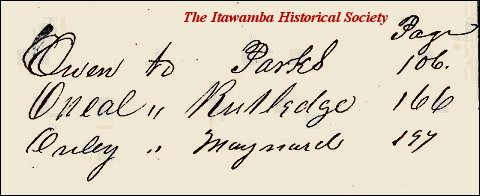 The Itawamba Historical Society
Page
Owen to Parks 106.
Oneal " Rutledge 166
Onley " Maynard 197